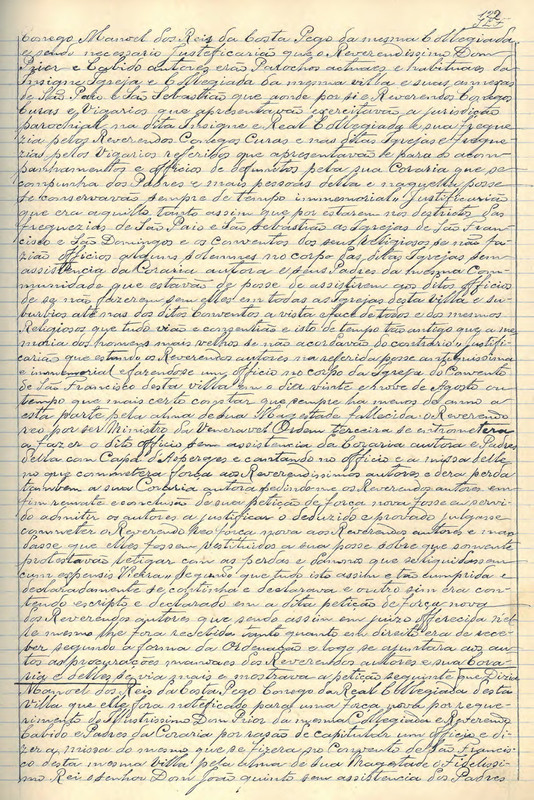 122
Conego Manoel dos Reis da Costa Pego da mesma Collegiada
e sendo necessario justificarião que o Reverendissimo Dom
Prior e Cabido autores erão Parochos actuaes e habituaes da
Insigne Igreja e Collegiada da mesma villa e suas annexas
de São Paio e São Sebastião que aonde por si e Reverendos Conegos
Curas e Vigarios que apresentavão exercitavão a jurisdição
parochial na dita Insigne e Real Collegiada e sua fregue
zia pelos Reverendos Conegos Curas e nas ditas Igrejas e fregue
zias pelos Vigarios referidos que apresentavão e para o acom
panhamentos e officios de defuntos pela sua Coraria que se
compunha dos Padres e mais pessoas della e naquella posse
se conservavão sempre de tempo immemorial Justificarião
que era aquillo tanto assim que por estarem nos destrictos das
freguezias de São Paio e São Sebastião as Igrejas de São Fran
cisco e São Domingos e os Conventos dos seus Religiosos se não fa
zião officios alguns solemnes no corpo das ditas Igrejas sem
assistencia da Coraria autora e seus Padres da mesma Com
munidade que estavão de posse de assistirem aos ditos officios
de se não fazerem sem elles em todas as Igrejas desta villa e su
burbios até nas dos ditos Conventos a vista e face de todos e dos mesmos
Religiosos que tudo vião e consentião e isto de tempo tão antigo que a me
moria dos homens mais velhos se não acordavão do contrario Justifi
carião que estando os Reverendos autores na referida posse antiquissima
e immemorial e fazendose um officio no corpo da Igreja do Convento
de São Francisco desta villa em o dia vinte e nove de Agosto ou
tempo que mais certo constar que sempre ha menos de anno a
esta parte pela alma de sua Magestade fallecida o Reverendo
reo por ser Ministro da Veneravel Ordem terceira se entrometera
a fazer o dito officio sem assistencia da Coraria autora e Padres
della com Capa d'Asperges e cantando no officio e a missa delle
no que commettera força aos Reverendissimos autores e dera perda
tambem a sua Coraria autora pedindome os Reverendos autores em
fim remate e conclusão de sua petição de força nova fosse eu servi
do admitir os autores a justificar o deduzido e provado julgasse
commeter o Reverendo Reo força nova aos Reverendos autores e man
dasse que elles fossem restituidos a sua posse sobre que somente
protestavão letigar com as perdas e damnos que se liquidassem
cum expensis segundo que tudo isto assim e tão cumprida e
declaradamente se continha e declarava e outro sim era con
teudo escripto e declarado em a dita petição de força nova
dos Reverendos autores que sendo assim em juizo offerecida nel
le mesmo lhe fora recebida tanto quanto em direito era de rece
ber segundo a forma da Ordenação e logo se ajuntara aos au
tos as procurações dos Reverendos autores e sua Cora
ria e delles se via mais e mostrava a petição seguinte que Dizia
Manoel dos Reis da Costa Pego Conego da Real Collegiada desta
villa que elle fora notificado para uma força nova por reque
rimento do Illustrissimo Dom Prior da mesma Collegiada e Reverendo
Cabido e Padres da Coraria por rasão de capitular um officio e di
zer a missa do mesmo que se fizera no Convento de São Francis
co desta mesma villa pela alma de sua Magestade e Fidelissi
mo Rei e Senhor Dom João quinto sem assistencia dos Padres